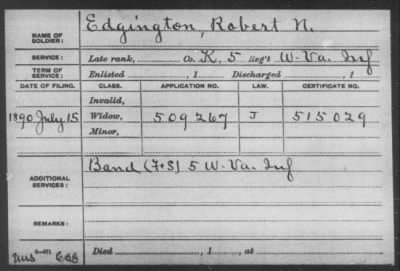 Edgington, Robert N.
NAME OF SOLDIER:
SERVICE: Late rank, Co. K, 5 Reg't W. Va. Inf
TERM OF SERVICE: Enlisted , 1 Discharged , 1
DATE OF FILING. CLASS. APPLICATION NO. LAW. CERTIFICATE NO.
Invalid,
1890 July 15 Widow, 509267 J 515029
Minor,
ADDITIONAL SERVICES: Band (F+S) 5 W. Va. Inf
REMARKS:
Died , 1 , at